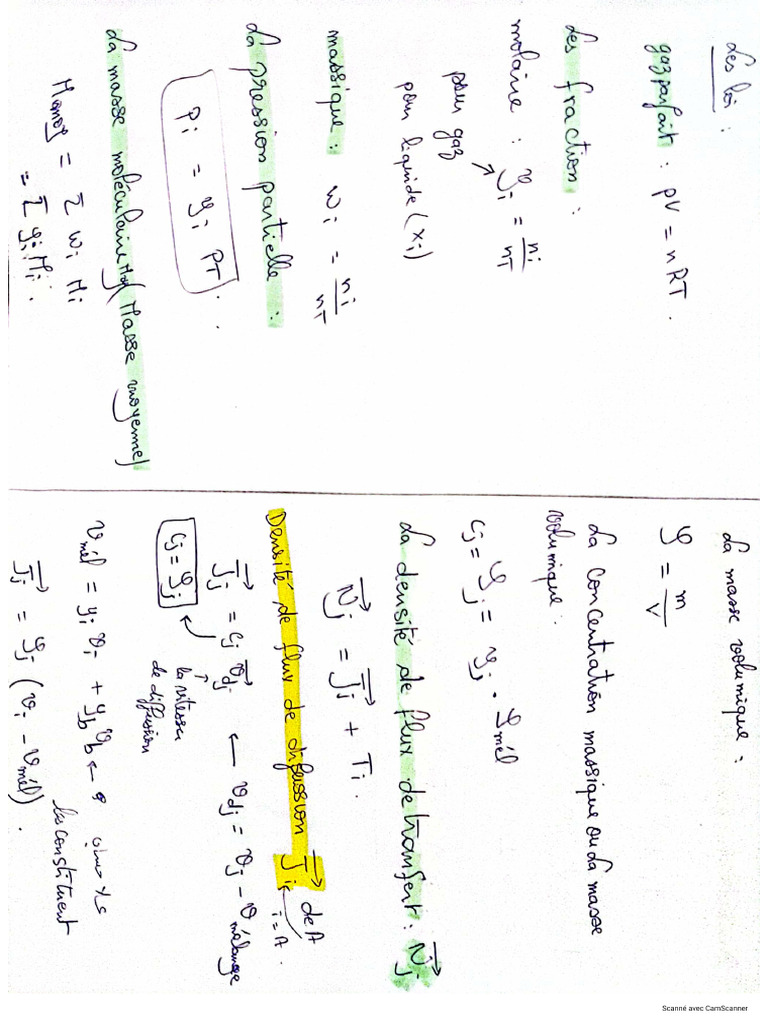 Les loi :
gaz parfait : PV = nRT.
Les fraction :
molaire : y_i = n_i / n_T
pour gaz
pour liquide (x_i)
massique : w_i = n_i / n_T
La pression partielle :
P_i = y_i P_T.
La masse moléculaire Moy (Masse moyenne)
M_omoy = Σ w_i M_i
= Σ y_i M_i.
La masse volumique :
φ = m / V
La concentration massique ou La masse
volumique :
C_j = φ_j = y_j . φ_mél
La densité de flux de transfert : N_j
N_j = J_i + T_i.
Densité de flux de difussion J_i de A
i = A.
J_j = C_j v_dj ← v_dj = v_j - v_mélange
la vitesse
de diffusion
C_j = φ_j
v_mél = y_i v_i + y_b v_b ←
les constituent
J_j = φ_j (v_i - v_mél).
Scanné avec CamScanner